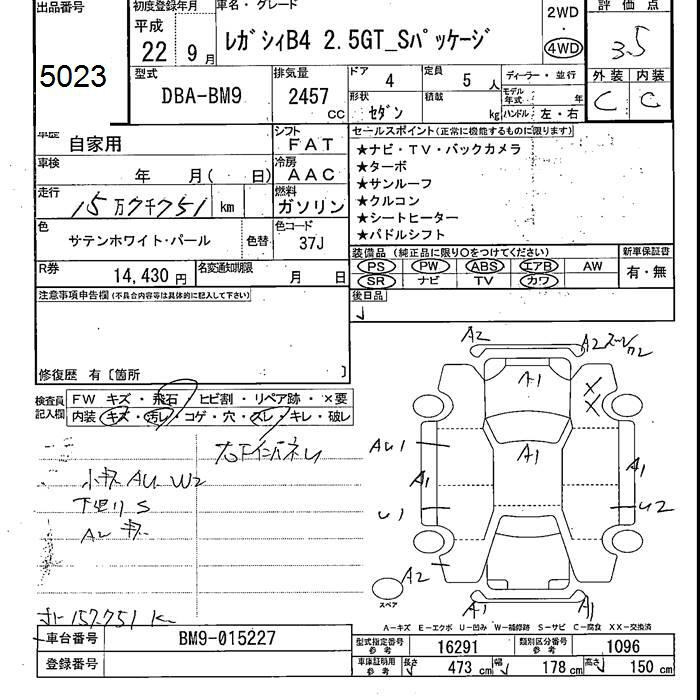 出品番号
5023
初度登録年月
平成
22 9月
車名・グレード
レガシィB4 2.5GT_Sパッケージ
2WD
・
4WD
評価点
3.5
型式
DBA-BM9
排気量
2457
CC
ドア 4
定員 5 人
形状 セダン
積載 kg
ディーラー・並行
モデル年式 年
ハンドル 左・右
外装 内装
C C
車歴 自家用
シフト FAT
車検 年 月( 日)
冷房 AAC
走行 15万7千751 km
燃料 ガソリン
色 サテンホワイト・パール
色替
色コード 37J
R券 14,430円
名変通知期限 月 日
セールスポイント(正常に機能するものに限ります)
★ナビ・TV・バックカメラ
★ターボ
★サンルーフ
★クルコン
★シートヒーター
★パドルシフト
装備品 (純正品に限り○をつけてください)
PS PW ABS エアB AW
SR ナビ TV カワ
新車保証書
有・無
後日品
注意事項申告欄(不具合内容等は具体的に記入して下さい)
修復歴 有〔箇所 〕
検査員記入欄
FW キズ・飛石・ヒビ割・リペア跡・×要
内装 キズ・汚レ・コゲ・穴・スレ・キレ・破レ
小キズ AU W2
下廻り S
A2
157,751 K
A2
A2
W2
A1
X
X
AU1
A1
A1
A1
U1
U2
A2
A1
A1
スペア
A-キズ E-エクボ U-凹み W-補修跡 S-サビ C-腐食 XX-交換済
車台番号 BM9-015227
登録番号
型式指定番号 参考 16291
類別区分番号 参考 1096
車庫証明用 参考 長さ 473 cm 幅 178 cm 高さ 150 cm